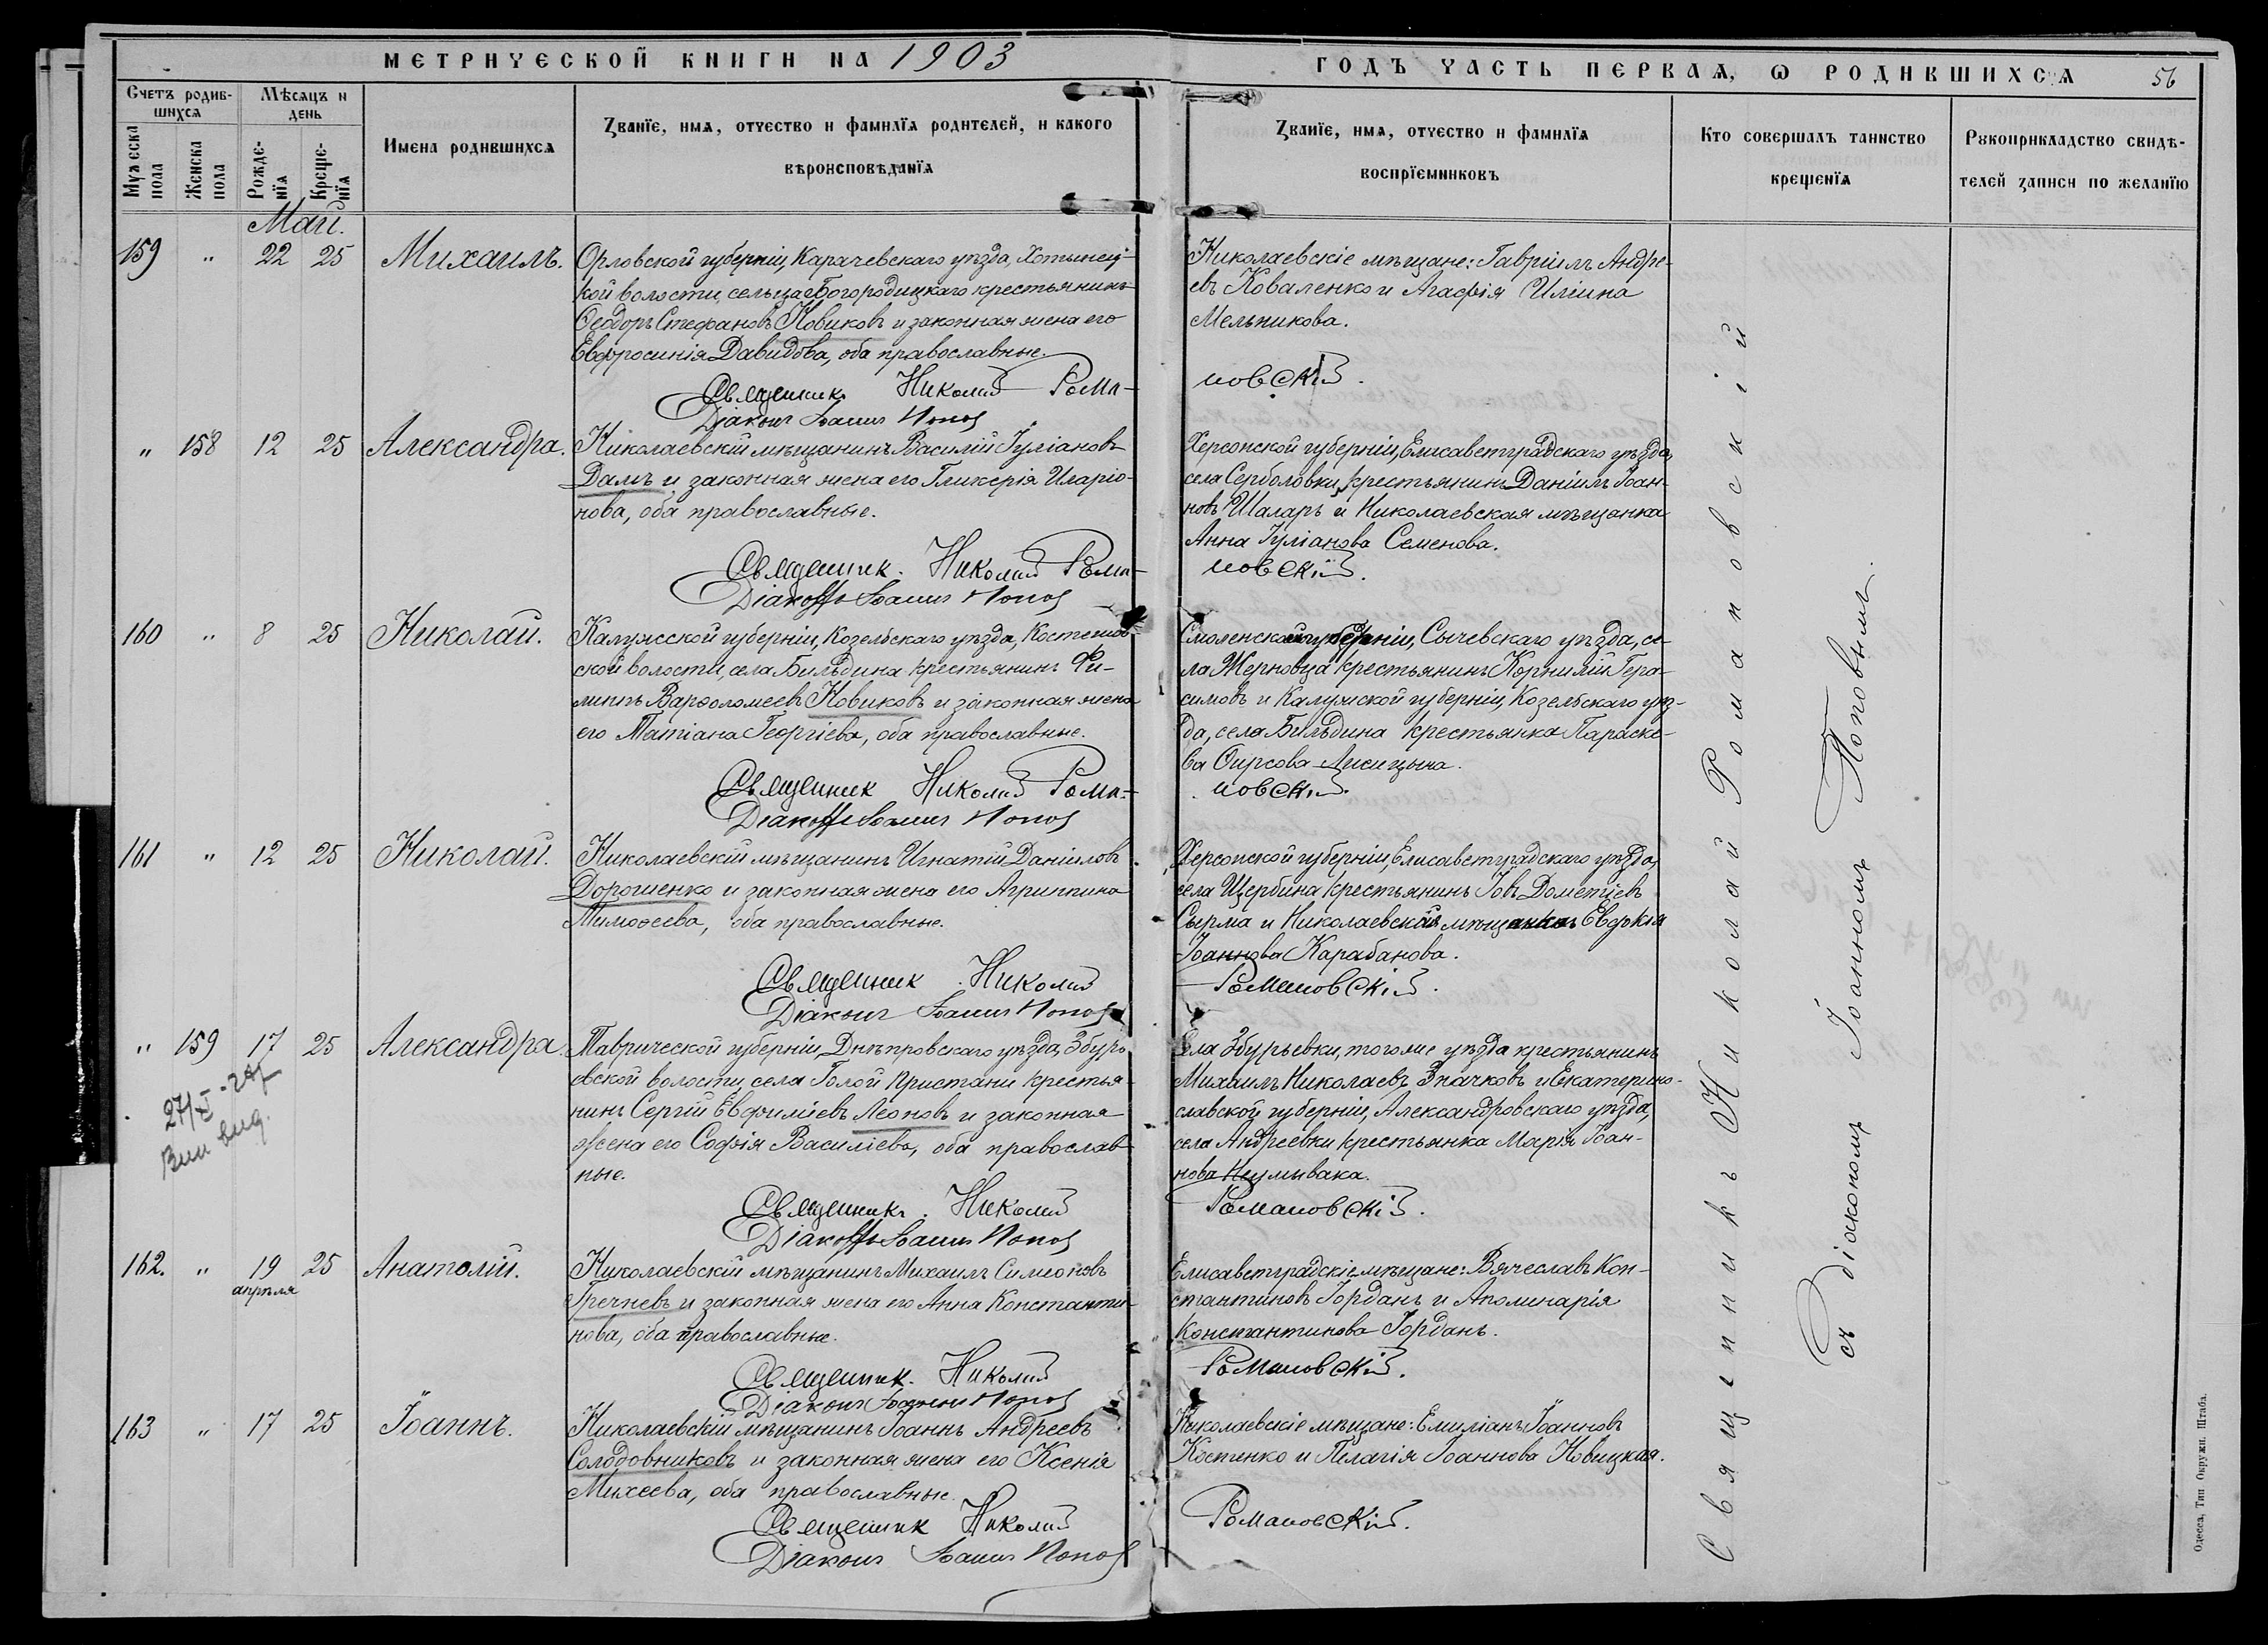 МЕТРИЧЕСКОЙ КНИГИ НА 1903
ГОДЪ ЧАСТЬ ПЕРВАЯ, Ѡ РОДИВШИХСЯ
56
Счетъ родив-
шихся
Мѣсяцъ и
день
Мужеска
пола
Женска
пола
Рожде-
нїя
Креще-
нїя
Имена родившихся
Званїе, имя, отчество и фамилїя родителей, и какого
вѣроисповѣданїя
Званїе, имя, отчество и фамилїя
воспрїемниковъ
Кто совершалъ таинство
крещенїя
Рукоприкладство свидѣ-
телей записи по желанїю
Май.
159 " 22 25 Михаилъ.
Орловской губерніи, Карачевскаго уѣзда, Хотынец-
кой волости, сельца Богородицкаго крестьянинъ
Ѳеодоръ Стефановъ Новиковъ и законная жена его
Евфросинія Давидова, оба православные.
Священникъ Николай Рома-
Діаконъ Іоаннъ Попов
Николаевскіе мѣщане: Гавріилъ Андре-
евъ Коваленко и Агафія Иліина
Мельникова.
новскій.
" 158 12 25 Александра.
Николаевскій мѣщанинъ Василій Іуліановъ
Дамъ и законная жена его Гликерія Иларіо-
нова, оба православные.
Священник. Николай Рома-
Діаконъ Іоаннъ Попов
Херсонской губерніи, Елисаветградскаго уѣзда,
села Серболовки, крестьянинъ Даніилъ Іоан-
новъ Шаларъ и Николаевская мѣщанка
Анна Іуліанова Семенова.
новскій.
160 " 8 25 Николай.
Калужской губерніи, Козельскаго уѣзда,
ской волости, села Бильдина крестьянинъ Фи-
липпъ Варѳоломеевъ Новиковъ и законная жена
его Татіана Георгіева, оба православные.
Священник Николай Рома-
Діаконъ Іоаннъ Попов
Смоленской губерніи, Сычевскаго уѣзда, се-
ла Жерновца крестьянинъ Корнилій Гера-
симовъ и Калужской губерніи, Козельскаго уѣз-
да, села Бильдина крестьянка Параске-
ва Ѳирсова Лисицына.
новскій.
161 " 12 25 Николай.
Николаевскій мѣщанинъ Игнатій Даніиловъ
Дорошенко и законная жена его Агриппина
Тимоѳеева, оба православные.
Священник Николай
Діаконъ Іоаннъ Попов
Херсонской губерніи, Елисаветградскаго уѣзда,
села Щербина крестьянинъ Іовъ Дометіевъ
Сырма и Николаевская мѣщанка
Іоаннова Карабанова.
Романовскій.
" 159 17 25 Александра.
Таврической губерніи, Днѣпровскаго уѣзда, Збурь-
евской волости, села Голой Пристани крестья-
нинъ Сергій Евфиміевъ Леоновъ и законная
жена его Софія Василіева, оба православ-
ные.
Священникъ. Николай
Діаконъ Іоаннъ Попов
села Збурьевки, тогоже уѣзда крестьянинъ
Михаилъ Николаевъ Значковъ и Екатерино-
славской губерніи, Александровскаго уѣзда,
села Андреевки крестьянка Марія Іоан-
нова Неумывака.
Романовскій.
162. " 19 25 Анатолій.
апрѣля
Николаевскій мѣщанинъ Михаилъ Симеоновъ
Гречневъ и законная жена его Анна Константи-
нова, оба православные.
Священник. Николай
Діаконъ Іоаннъ Попов
Елисаветградскіе мѣщане: Вячеславъ Кон-
стантиновъ Іорданъ и Аполинарія
Константинова Іорданъ.
Романовскій.
163 " 17 25 Іоаннъ.
Николаевскій мѣщанинъ Іоаннъ Андреевъ
Солодовниковъ и законная жена его Ксенія
Михеева, оба православные.
Священник Николай
Діаконъ Іоаннъ Попов
Николаевскіе мѣщане: Емиліанъ Іоанновъ
Костенко и Пелагія Іоаннова Новицкая.
Романовскій.
Священникъ Николай Романовскій
съ діакономъ Іоанномъ Поповымъ.
Одесса, Тип Окружн. Штаба.